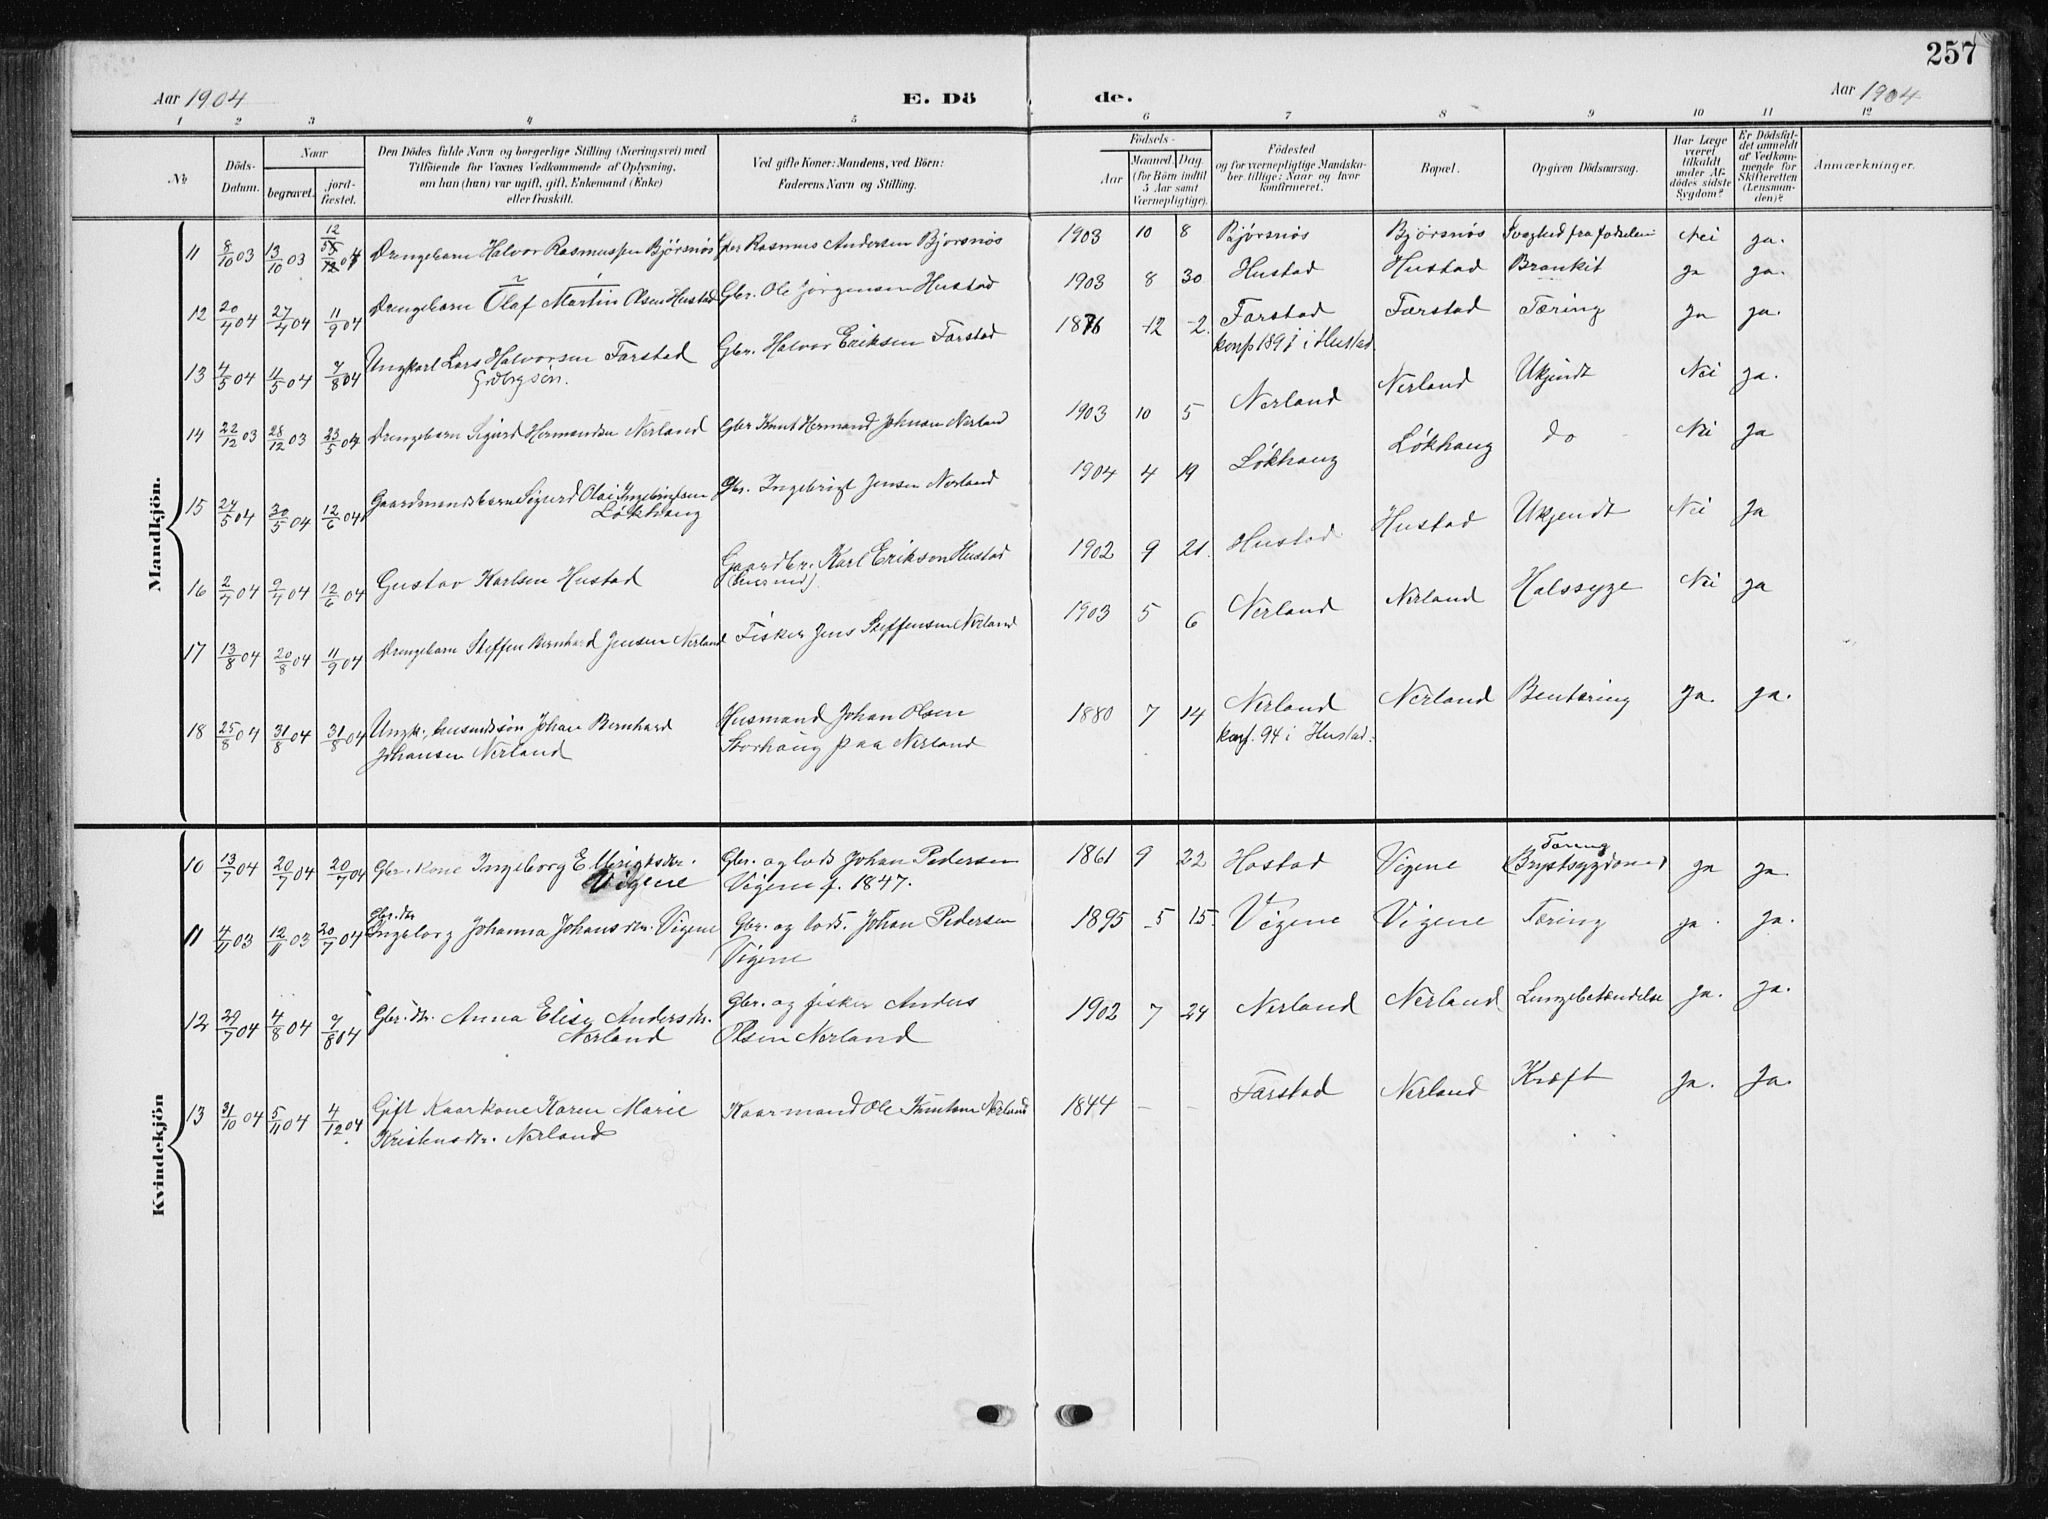 257
Aar 1904 E. Dö de. Aar 1904
1 2 3 4 5 6 7 8 9 10 11 12
No Döds-Datum. Naar begravet. jord-fæstet. Den Dödes fulde Navn og borgerlige Stilling (Næringsvei) med Tilföiende for Voxnes Vedkommende af Oplysning, om han (hun) var ugift, gift, Enkemand (Enke) eller fraskilt. Ved gifte Koner: Mandens, ved Börn: Faderens Navn og Stilling. Födsels- Aar Maaned. Dag. (for Börn indtil 5 Aar samt Værnepligtige). Födested og for værnepligtige Mandskaber tillige: Naar og hvor konfirmeret. Bopæl. Opgiven Dödsaarsag. Har Læge været tilkaldt under Afdödes sidste Sygdom? Er Dödsfaldet anmeldt af Vedkommende for Skifteretten (Lensmanden)? Anmærkninger.
Mandkjön.
11 8/10 03 13/10 03 12/5 04 Drengebarn Halvor Rasmussen Bjørsnøs Gbr Rasmus Andersen Bjørsnøs 1903 10 8 Bjørsnøs Bjørsnøs Svaghed fra fødselen Nei ja.
12 20/4 04 27/4 04 11/9 04 Drengebarn Olaf Martin Olsen Hustad Gbr. Ole Jørgensen Hustad 1903 8 30 Hustad Hustad Bronkit ja ja.
13 4/5 04 11/5 04 7/8 04 Ungkarl Lars Halvorsen Farstad Gbr. Halvor Eriksen Farstad 1876 12 2 Farstad Farstad Tæring ja ja.
Grdbrgsøn. konf 1891 i Hustad
14 22/12 03 28/12 03 23/5 04 Drengebarn Sigurd Hermandsen Nerland Gbr Knut Hermand Johnsen Nerland 1903 10 5 Nerland Nerland Ukjendt Nei ja.
15 24/5 04 30/5 04 12/6 04 Gaardmandsbarn Sigurd Olai Ingebrigtsen Gbr. Ingebrigt Jensen Nerland 1904 4 19 Løkhaug Løkhaug do Nei ja
Løkhaug
16 2/7 04 9/7 04 12/6 04 Gustav Karlsen Hustad Gaardbr. Karl Erikson Hustad 1902 9 21. Hustad Hustad Ukjendt Nei ja
17 13/8 04 20/8 04 11/9 04 Drengebarn Steffen Bernhard Jensen Nerland Fisker Jens Steffensen Nerland 1903 5 6 Nerland Nerland Halssyge Nei ja
18 25/8 04 31/8 04 31/8 04 Ungk., husmdssøn Johan Bernhard Husmand Johan Olsen 1880 7 14 Nerland Nerland Bentæring ja ja.
Johansen Nerland Storhaug paa Nerland konf. 94 i Hustad.
Kvindekjön
10 13/7 04 20/7 04 20/7 04 Gbr. kone Ingeborg Ellerigksdtr. Gbr. og lods Johan Pedersen 1861 9 22 Hostad Vigene Tæring (Brystsygdom) ja ja.
Vigene Vigene f. 1847.
11 4/11 03 12/11 03 20/7 04 Gbr. dtr Ingeborg Johanna Johansdtr. Vigene Gbr. og lods. Johan Pedersen 1895 5 15. Vigene Vigene Tæring ja. ja.
Vigene
12 29/7 04 4/8 04 7/8 04 Gbr. dtr. Anna Elise Andersdtr. Gbr. og fisker Anders 1902 7 24 Nerland Nerland Lungebetændelse ja. ja.
Nerland Olsen Nerland
13 31/10 04 5/11 04 4/12 04 Gift Kaarkone Karen Marie Kaarmand Ole Knutsen Nerland 1844 - - Farstad Nerland Kræft ja. ja.
Kristensdtr. Nerland